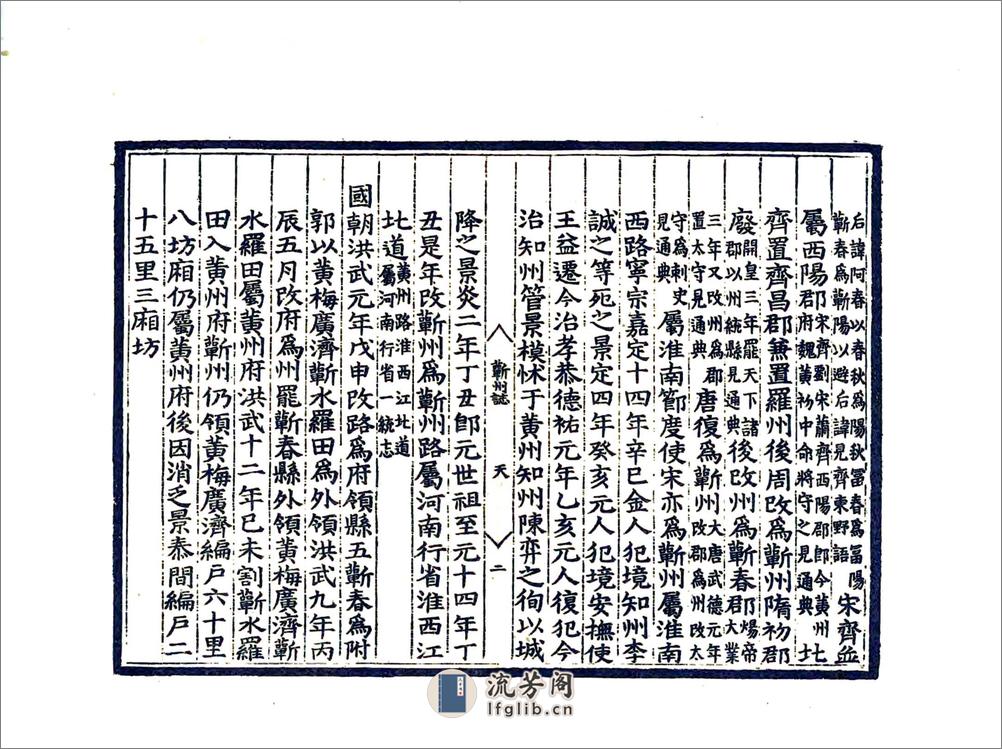 后諱阿春以春秋爲陽秋冨春爲冨陽
蘄春爲蘄陽以避后諱見齊東野語
宋齊並
屬西陽郡
宋齊劉宋蕭齊西陽郡卽今黃州北
郡府魏黃初中命將守之見通典
北
齊置齊昌郡兼置羅州後周改爲蘄州隋初郡
廢
開皇三年罷天下諸
郡以州統縣見通典
後改州爲蘄春郡
煬帝
君大業
三年又改州爲郡
置太守見通典
唐復爲蘄州
大唐武德元年
改郡爲州改太
守爲刺史
見通典
屬淮南節度使宋亦爲蘄州屬淮南
西路寧宗嘉定十四年辛巳金人犯境知州李
誠之等死之景定四年癸亥元人犯境安撫使
王益遷今治孝恭德祐元年乙亥元人復犯今
治知州管景模怵于黃州知州陳弈之徇以城
蘄州誌 天 二
降之景炎二年丁丑卽元世祖至元十四年丁
丑是年改蘄州爲蘄州路屬河南行省淮西江
北道
黃州路淮西江北道
屬河南行省一統志
國朝洪武元年戊申改路爲府領縣五蘄春爲附
郭以黃梅廣濟蘄水羅田爲外領洪武九年丙
辰五月改府爲州罷蘄春縣外領黃梅廣濟蘄
水羅田屬黃州府洪武十二年已未割蘄水羅
田入黃州府蘄州仍領黃梅廣濟編戸六十里
八坊廂仍屬黃州府後因消乏景泰間編戸二
十五里三廂坊
流芳阁
lfglib.cn